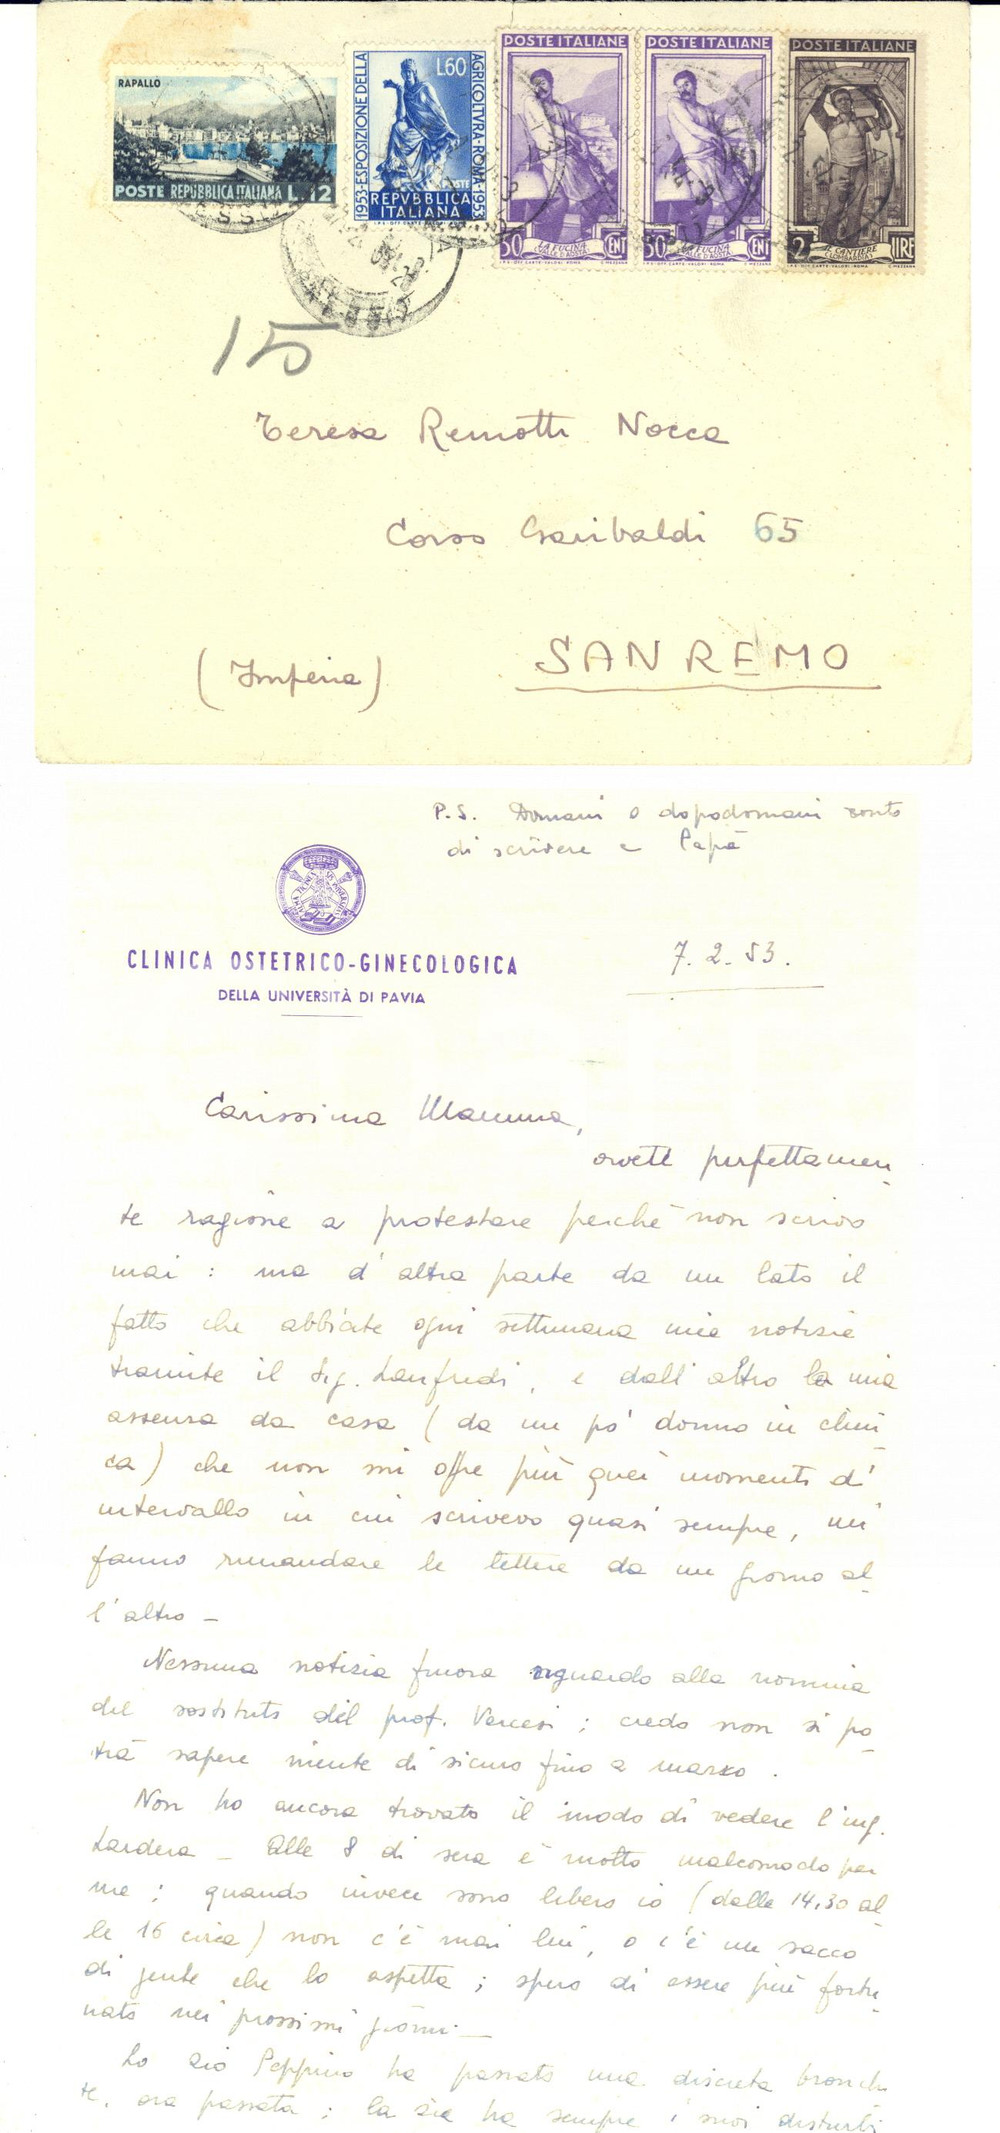 RAPALLO
POSTE REPUBBLICA ITALIANA L.12
1953-ESPOSIZIONE DELLA
AGRICOLTVRA-ROMA-1953
L.60
POSTE
REPVBBLICA
ITALIANA
POSTE ITALIANE
50 LA FUCINA CENT
POSTE ITALIANE
50 LA FUCINA CENT
POSTE ITALIANE
2 IL CANTIERE LIRE
15
Teresa Remotti Nocca
Corso Garibaldi 65
SANREMO
(Imperia)
P.S. Domani o dopodomani conto
di scrivere a Papà
CLINICA OSTETRICO-GINECOLOGICA
DELLA UNIVERSITÀ DI PAVIA
7.2.53.
Carissima Mamma,
avete perfettamen
te ragione a protestare perché non scrivo
mai : ma d'altra parte da un lato il
fatto che abbiate ogni settimana mie notizie
tramite il Sig. Lanfredi, e dall'altro la mia
assenza da casa (da un po' dormo in clini
ca) che non mi offre più quei momenti d'
intervallo in cui scrivevo quasi sempre, mi
fanno rimandare le lettere da un giorno al
l'altro -
Nessuna notizia finora riguardo alla nomina
del sostituto del prof. Vercesi ; credo non si po
trà sapere niente di sicuro fino a marzo .
Non ho ancora trovato il modo di vedere l'ing.
Lardera - Alle 8 di sera è molto malcomodo per
me ; quando invece sono libero io (dalle 14,30 al
le 16 circa) non c'è mai lui, o c'è un sacco
di gente che lo aspetta ; spero di essere più fortu
nato nei prossimi giorni -
Lo zio Peppino ha passato una discreta bronchi
te, ora passata ; la zia ha sempre i suoi disturbi